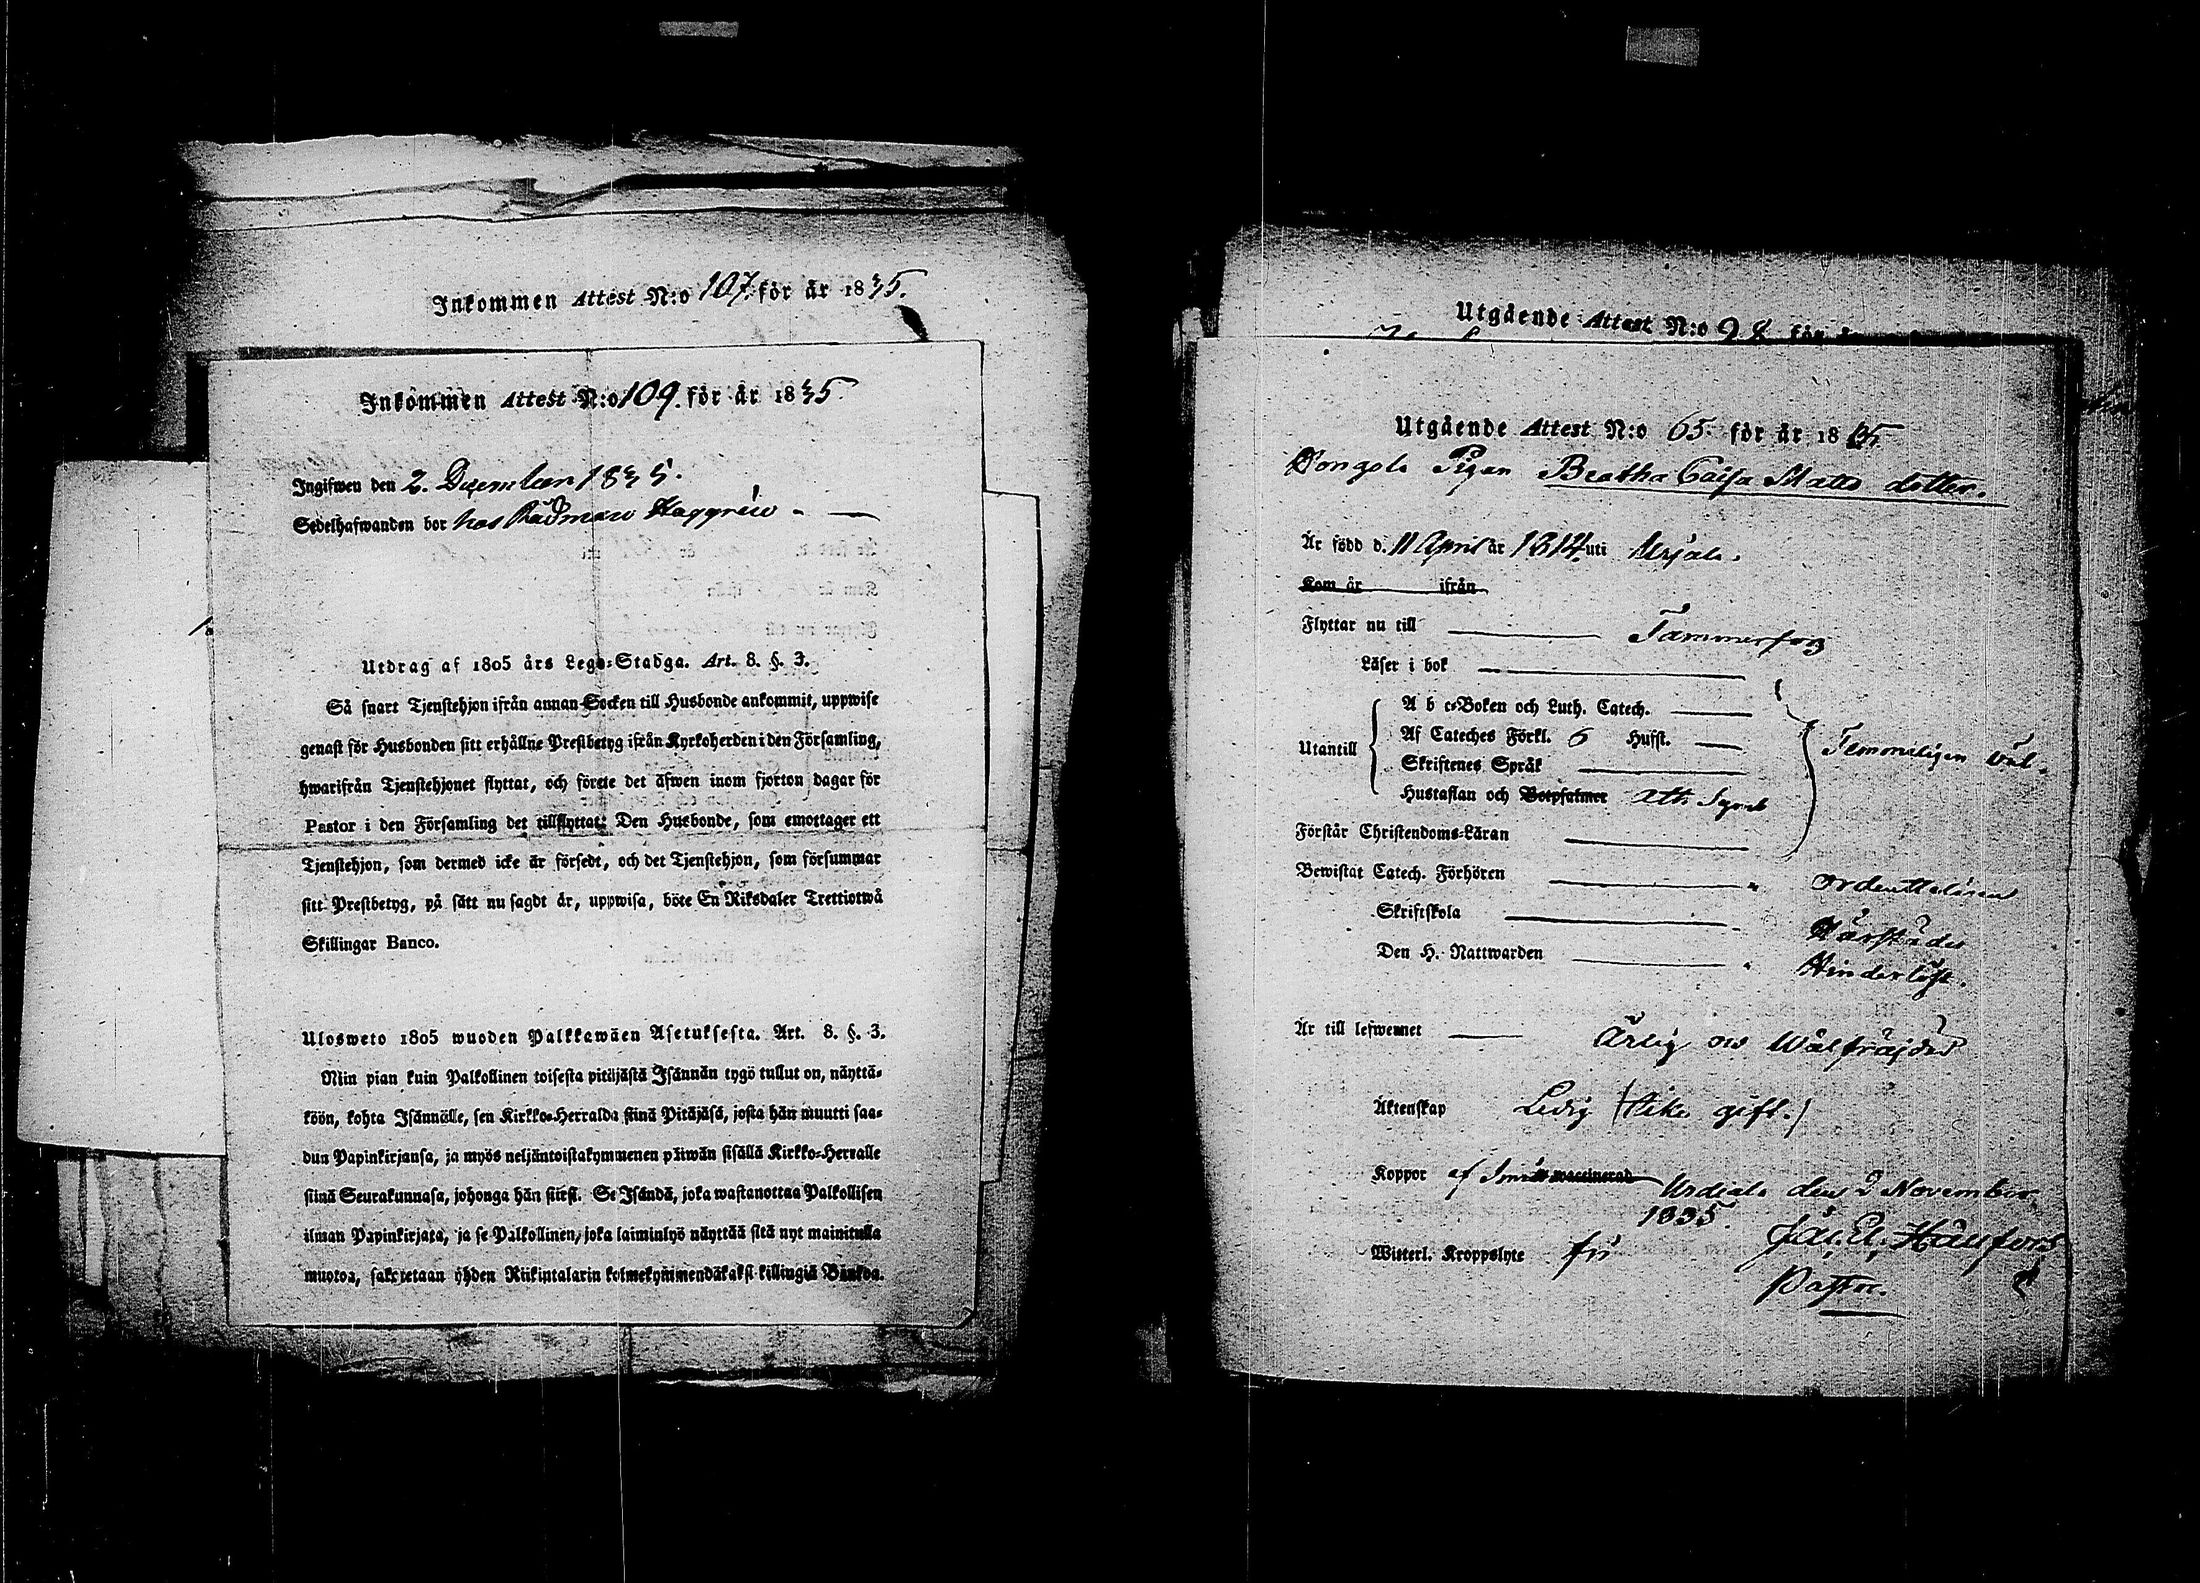 Inkommen Attest N:o 107. för år 1835.
Inkommen Attest N:o 109. för år 1835
Ingifwen den 2. December 1835.
Sedelhafwanden bor hos Rådman Haggrén
Utdrag af 1805 års Lego-Stadga. Art. 8. §. 3.
Så snart Tjenstehjon ifrån annan Socken till Husbonde ankommit, uppwise
genast för Husbonden sitt erhållne Prestbetyg ifrån Kyrkoherden i den Församling,
hwarifrån Tjenstehjonet flyttat, och förete det äfwen inom fjorton dagar för
Pastor i den Församling det tillflyttat. Den Husbonde, som emottager ett
Tjenstehjon, som dermed icke är försedt, och det Tjenstehjon, som försummar
sitt Prestbetyg, på sätt nu sagdt är, uppwisa, böte En Riksdaler Trettiotwå
Skillingar Banco.
Ulosweto 1805 wuoden Palkkawäen Asetuksesta. Art. 8. §. 3.
Niin pian kuin Palkollinen toisesta pitäjästä Isännän tygö tullut on, näyttä-
köön, kohta Isännälle, sen Kirkko-Herralda siinä Pitäjäsä, josta hän muutti saa-
dun Papinkirjansa, ja myös neljäntoistakymmenen päiwän sisällä Kirkko-Herralle
siinä Seurakunnasa, johonga hän siirsi. Se Isändä, joka wastanottaa Palkollisen
ilman Papinkirjata, ja se Palkollinen, joka laiminlyö näyttää sitä nyt mainitulla
muotoa, sakotetaan yhden Riikintalarin kolmekymmendäkaksi killingiä Bankoa.
Utgående Attest N:o 98 för år
Utgående Attest N:o 65. för år 1835
Pigan Beatha Caisa Matts dotter.
Är född d. 11 April år 1814 uti Urjala.
Kom år ifrån
Flyttar nu till Tammerfors
Läser i bok
A b c-Boken och Luth. Catech.
Utantill Af Cateches Förkl. 6 Hufst. Temmeligen väl.
Skriftenes Språk
Hustaflan och Botpsalmer Ath. Symb
Förstår Christendoms-Läran
Bewistat Catech. Förhören ordentteligen
Skriftskola
Den H. Nattwarden Hinderlöst.
Är till lefwernet Ärlig och Wälfräjdad
Äktenskap Ledig (icke gift.)
Koppor af är waccinerad Urdiala den 2 November
1835.
Witterl. Kroppslyte fri
Pastor.